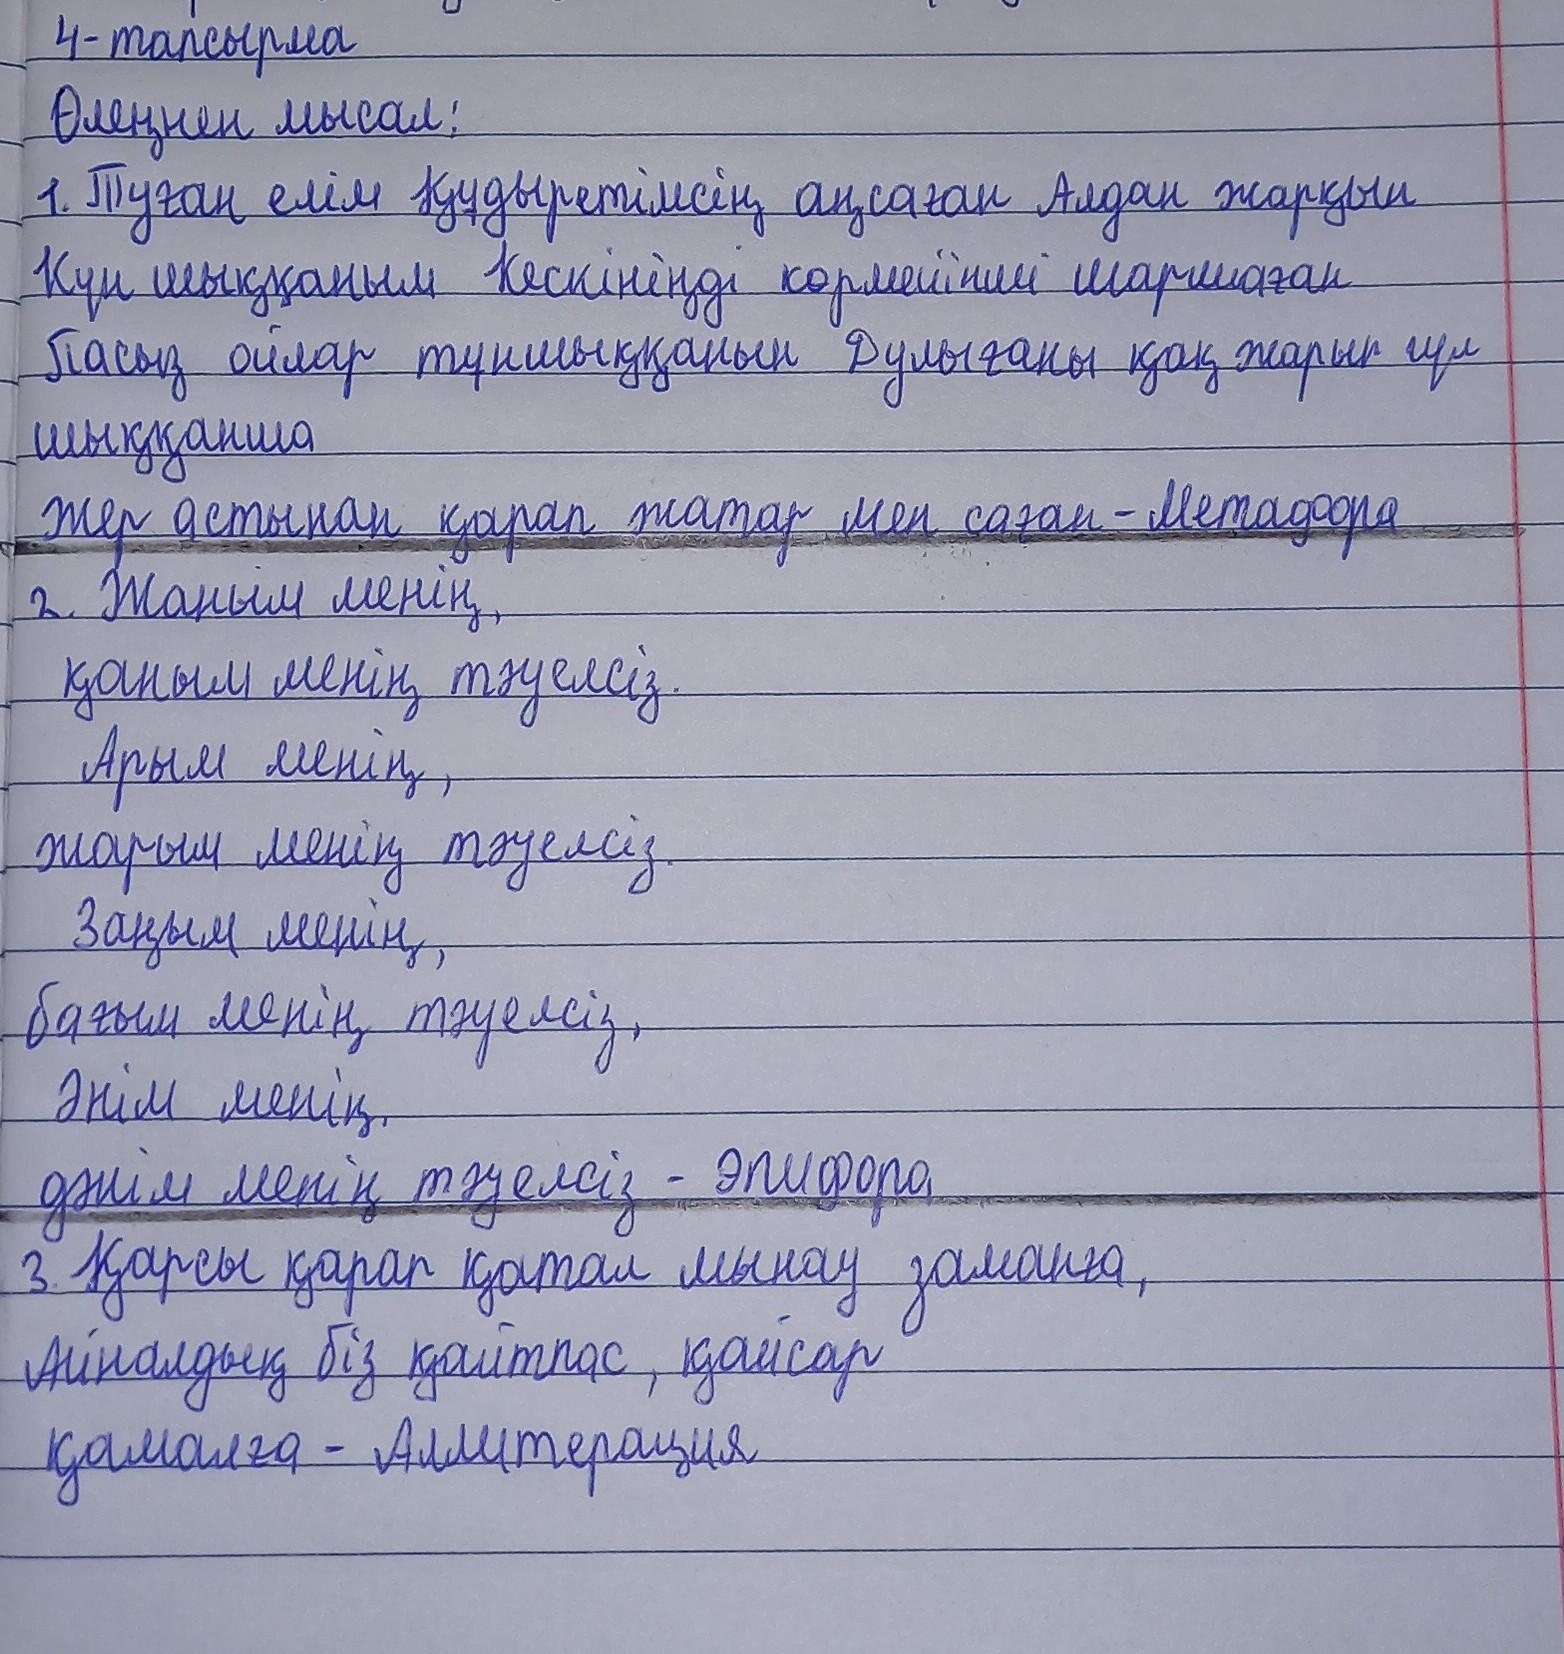 4-тапсырма
Өлеңнен мысал:
1. Туған елім Құдыретімсің аңсаған Алдан жарқын
Күн шыққаным Кескініңді көрмейінші шаршаған
Пасық ойлар тұншыққанын Дулығаны қақ жарып гүл
шыққанша
жер астынан қарап жатар мен саған - Метафора
2. Жаным менің,
қаным менің тәуелсіз.
Арым менің,
жарым менің тәуелсіз.
Заңым менің,
бағым менің тәуелсіз,
Әнім менің,
дәнім менің тәуелсіз - Эпифора
3. Қарсы қарап қатал мынау заманға,
Айналдық біз қайтпас, қайсар
қамалға - Аллитерация